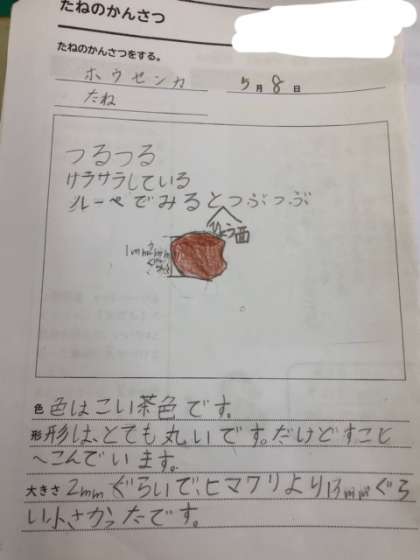 たねのかんさつ
たねのかんさつをする。
ホウセンカ 5月8日
たね
つるつる
サラサラしている
ルーペでみるとつぶつぶ
ひょう面
色 色はこい茶色です。
形 形は、とても丸いです。だけどすこし
へこんでいます。
大きさ 2mmぐらいで、ヒマワリより13mmぐら
い小さかったです。